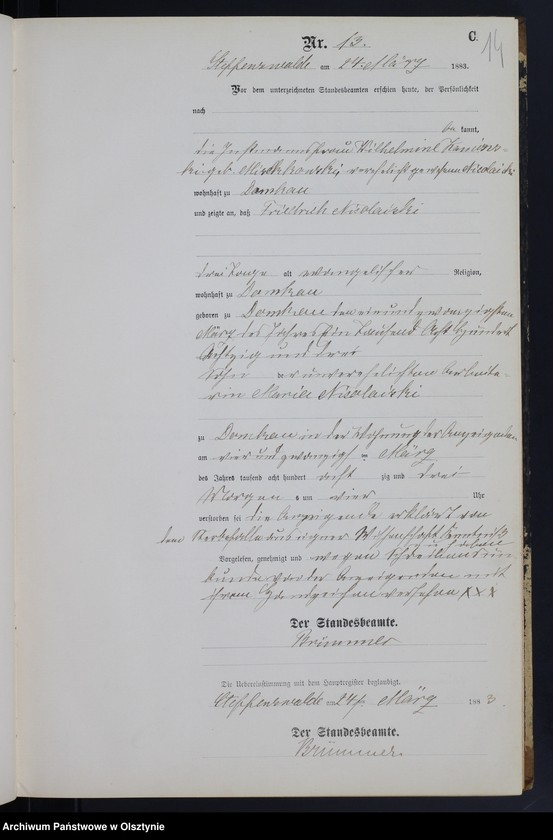 C.
14
Nr. 13.
Steffenswalde am 24. März 1883.
Vor dem unterzeichneten Standesbeamten erschien heute, der Persönlichkeit
nach
be kannt,
die Instmannsfrau Wilhelmine
geb. verehelicht gewesene Nicolaiski
wohnhaft zu Domkau
und zeigte an, daß Friedrich Nicolaiski
drei Tage alt evangelischer Religion,
wohnhaft zu Domkau
geboren zu Domkau den einundzwanzigsten
März des Jahres Ein Tausend Acht Hundert
Achtzig und drei
Sohn der unverehelichten Arbeite-
rin Maria Nicolaiski
zu Domkau in der Wohnung der Anzeigenden
am vierundzwanzigsten März
des Jahres tausend acht hundert acht zig und drei
Morgens um vier Uhr
verstorben sei die Anzeigende erklärt von
dem Sterbefalle aus eigner Wissenschaft
Vorgelesen, genehmigt und wegen
kunde von der Anzeigenden mit
ihrem Handzeichen versehen XXX
Der Standesbeamte.
Brümmer
Die Uebereinstimmung mit dem Hauptregister beglaubigt.
Steffenswalde am 24. März 1883.
Der Standesbeamte.
Brümmer.
Archiwum Państwowe w Olsztynie